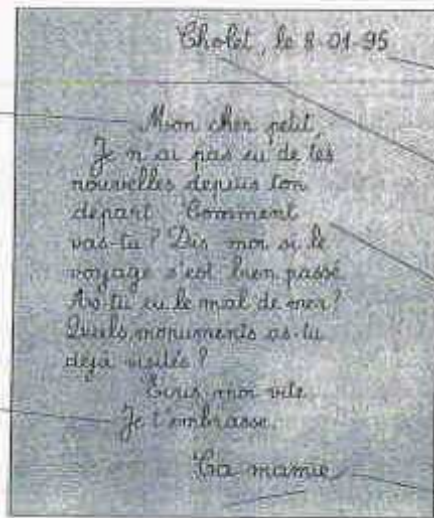 Cholet, le 8-01-95
Mon cher petit,
Je n'ai pas eu de tes
nouvelles depuis ton
départ. Comment
vas-tu ? Dis moi si le
voyage s'est bien passé.
As-tu eu le mal de mer ?
Quels monuments as-tu
déjà visités ?
Ecris moi vite.
Je t'embrasse.
Ta mamie